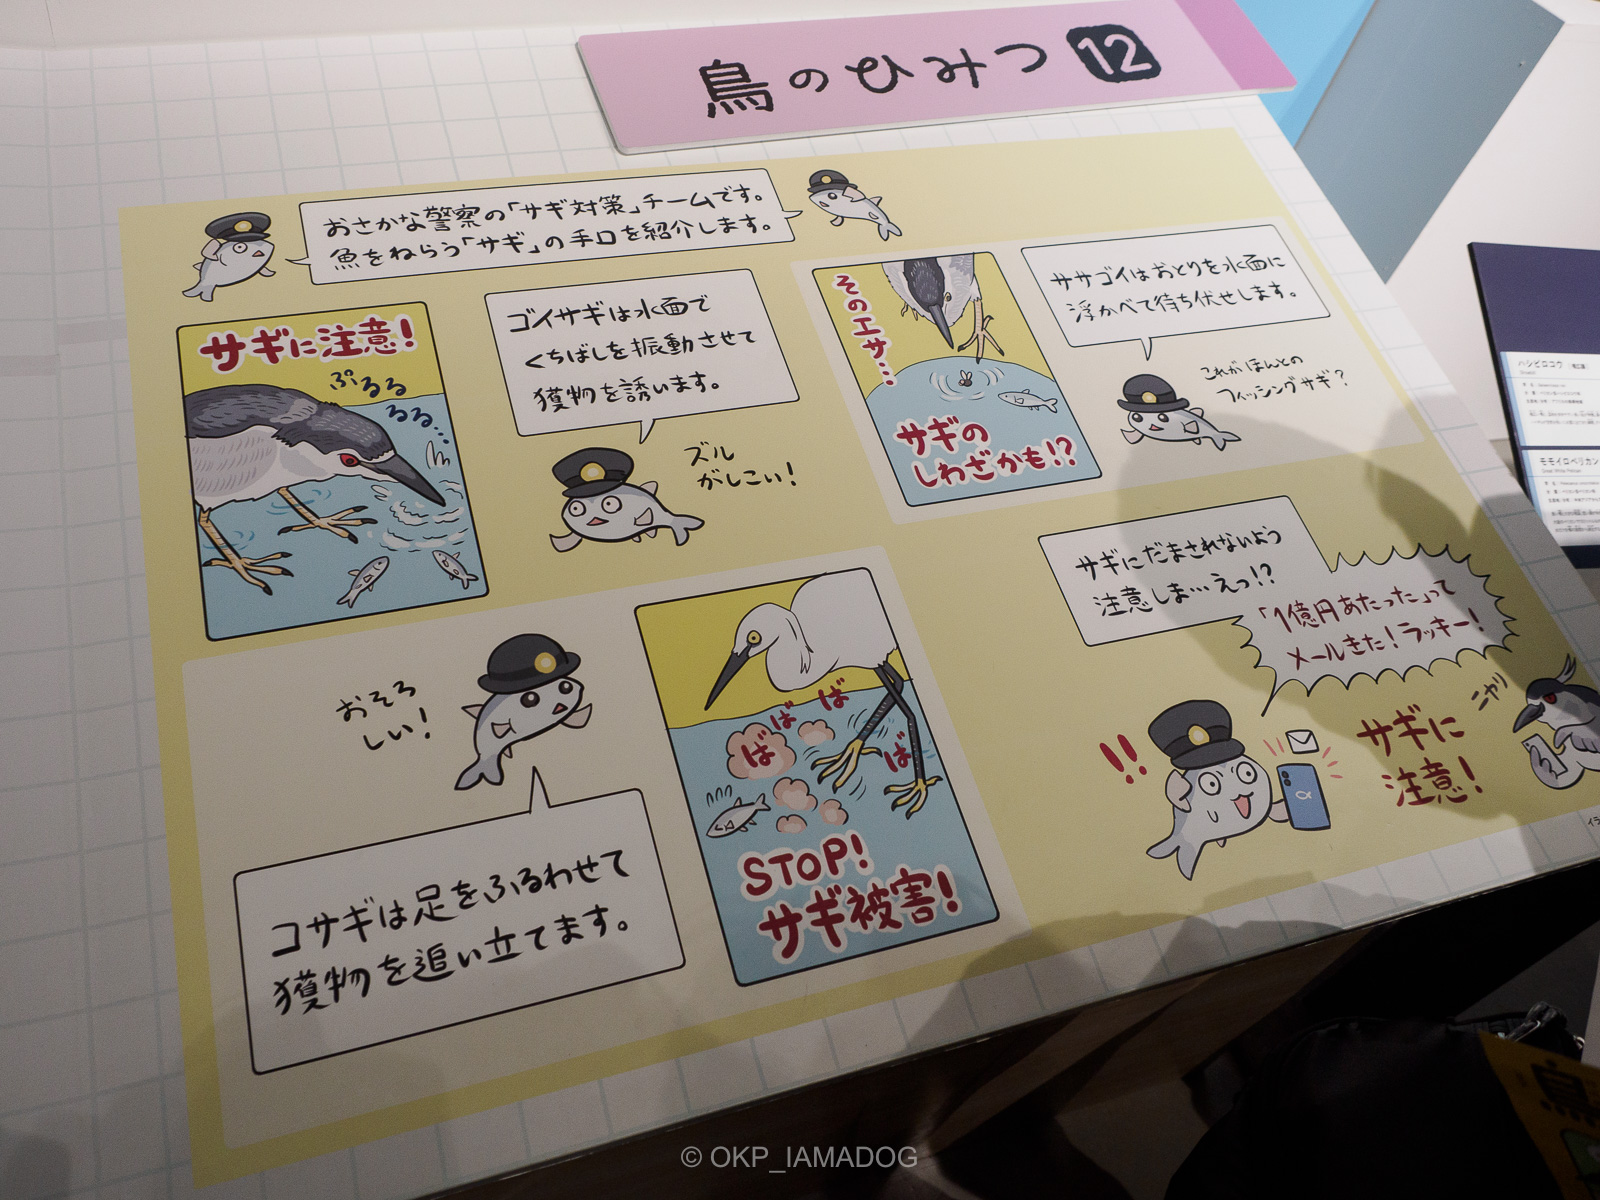 鳥のひみつ 12
おさかな警察の「サギ対策」チームです。
魚をねらう「サギ」の手口を紹介します。
サギに注意!
ぷるる
るる…
ゴイサギは水面で
くちばしを振動させて
獲物を誘います。
ズル
がしこい!
そのエサ…
サギの
しわざかも!?
ササゴイはおとりを水面に
浮かべて待ち伏せします。
これがほんとの
フィッシングサギ?
おそろ
しい!
コサギは足をふるわせて
獲物を追い立てます。
ば
ば
ば
ば
STOP!
サギ被害!
サギにだまされないよう
注意しま…えっ!?
「1億円あたった」って
メールきた!ラッキー!
!!
サギに
注意!
ニヤリ
ハシビロコウ
モモイロペリカン
鳥
© OKP_IAMADOG